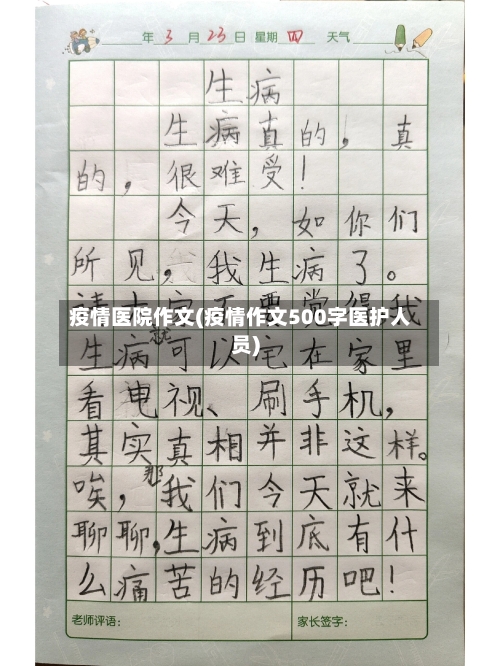 年 3 月 23 日 星期 四 天气
生病
生病真的，真
的，很难受！
今天，如你们
所见，我生病了。
请大家不要觉得我
疫情医院作文(疫情作文500字医护人
员)
生病就可以宅在家里
看电视、刷手机，
其实真相并非这样。
唉，那我们今天就来
聊聊，生病到底有什
么痛苦的经历吧！
老师评语： 家长签字：